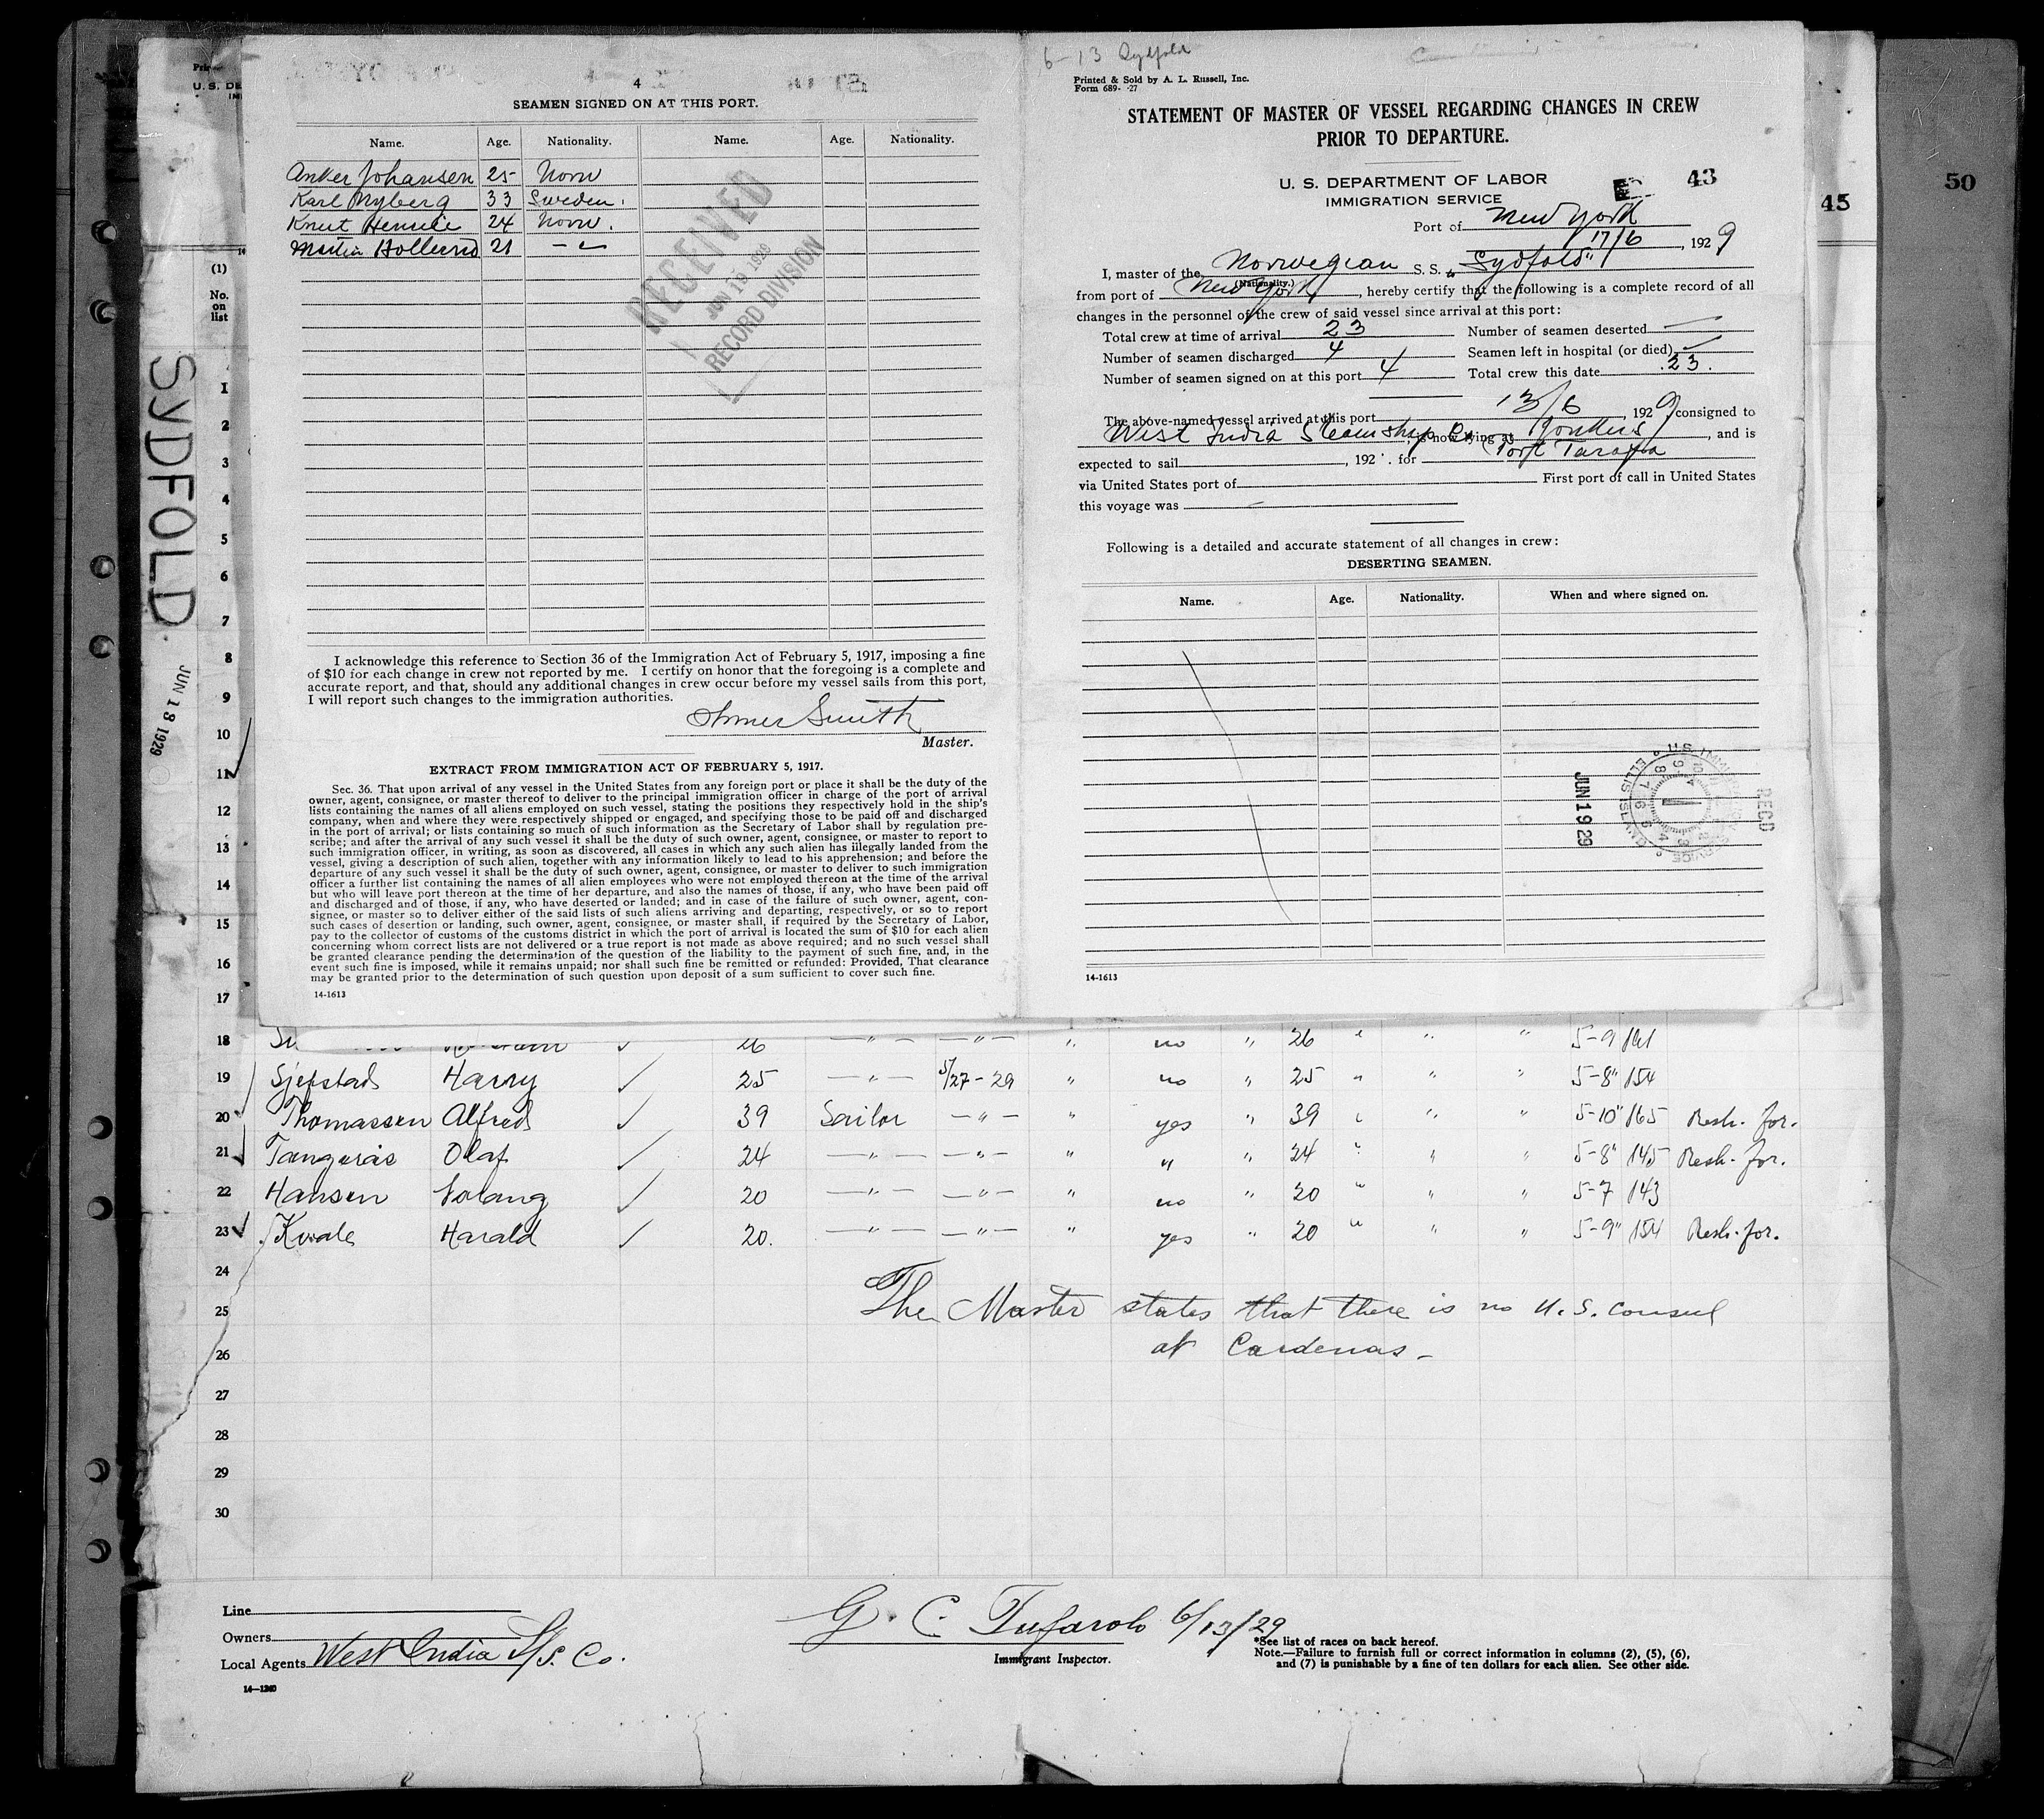 4
SEAMEN SIGNED ON AT THIS PORT.
Name. Age. Nationality. Name. Age. Nationality.
Anker Johansen 25 Norw
Karl Nyberg 33 Sweden.
Knut 24 Norw.
Martin 21 — " —
RECEIVED
JUN 19 1929
RECORD DIVISION
I acknowledge this reference to Section 36 of the Immigration Act of February 5, 1917, imposing a fine
of $10 for each change in crew not reported by me. I certify on honor that the foregoing is a complete and
accurate report, and that, should any additional changes in crew occur before my vessel sails from this port,
I will report such changes to the immigration authorities.
Smith
Master.
EXTRACT FROM IMMIGRATION ACT OF FEBRUARY 5, 1917.
Sec. 36. That upon arrival of any vessel in the United States from any foreign port or place it shall be the duty of the
owner, agent, consignee, or master thereof to deliver to the principal immigration officer in charge of the port of arrival
lists containing the names of all aliens employed on such vessel, stating the positions they respectively hold in the ship's
company, when and where they were respectively shipped or engaged, and specifying those to be paid off and discharged
in the port of arrival; or lists containing so much of such information as the Secretary of Labor shall by regulation pre-
scribe; and after the arrival of any such vessel it shall be the duty of such owner, agent, consignee, or master to report to
such immigration officer, in writing, as soon as discovered, all cases in which any such alien has illegally landed from the
vessel, giving a description of such alien, together with any information likely to lead to his apprehension; and before the
departure of any such vessel it shall be the duty of such owner, agent, consignee, or master to deliver to such immigration
officer a further list containing the names of all alien employees who were not employed thereon at the time of the arrival
but who will leave port thereon at the time of her departure, and also the names of those, if any, who have been paid off
and discharged and of those, if any, who have deserted or landed; and in case of the failure of such owner, agent, con-
signee, or master so to deliver either of the said lists of such aliens arriving and departing, respectively, or so to report
such cases of desertion or landing, such owner, agent, consignee, or master shall, if required by the Secretary of Labor,
pay to the collector of customs of the customs district in which the port of arrival is located the sum of $10 for each alien
concerning whom correct lists are not delivered or a true report is not made as above required; and no such vessel shall
be granted clearance pending the determination of the question of the liability to the payment of such fine, and, in the
event such fine is imposed, while it remains unpaid; nor shall such fine be remitted or refunded: Provided, That clearance
may be granted prior to the determination of such question upon deposit of a sum sufficient to cover such fine.
14-1613
6-13 Sydfold
Printed & Sold by A. L. Russell, Inc.
Form 689- -27
STATEMENT OF MASTER OF VESSEL REGARDING CHANGES IN CREW
PRIOR TO DEPARTURE.
U. S. DEPARTMENT OF LABOR
IMMIGRATION SERVICE
43
Port of New York
17/6, 1929
I, master of the Norwegian S. S. "Sydfold"
(Nationality.)
from port of New York, hereby certify that the following is a complete record of all
changes in the personnel of the crew of said vessel since arrival at this port:
Total crew at time of arrival 23 Number of seamen deserted —
Number of seamen discharged 4 Seamen left in hospital (or died)
Number of seamen signed on at this port 4 Total crew this date 23.
The above-named vessel arrived at this port 13/6, 1929 consigned to
West India Steamship Co, is now lying at Yonkers, and is
expected to sail , 192 . for Port Tarafa
via United States port of First port of call in United States
this voyage was —
Following is a detailed and accurate statement of all changes in crew:
DESERTING SEAMEN.
Name. Age. Nationality. When and where signed on.
U.S. IMMIGRATION SERVICE ELLIS ISLAND
RECD
JUN 19 29
14-1613
45
50
U. S. DE
(1)
No.
on
list
SYDFOLD
JUN 18 1929
1
2
3
4
5
6
7
8
9
10
11
12
13
14
15
16
17
18 26 — " — — " — " no " 26 " " " 5-9 161
19 Sjefstad Harry 25 — " — 5/27-29 " no " 25 " " " 5-8" 154
20 Thomassen Alfred 39 Sailor — " — " yes " 39 " " " 5-10" 165 Resh. for.
21 Tangerås Olaf 24 — " — — " — " " " 24 " " " 5-8" 145 Resh. for.
22 Hansen 20 — " — — " — " no " 20 " " " 5-7 143
23 Kvale Harald 20. — " — — " — " yes " 20 " " " 5-9" 154 Resh. for.
24
25 The Master states that there is no U.S. consul
26 at Cardenas —
27
28
29
30
Line
Owners
Local Agents West India S/S. Co.
14—1240
G. C. Tufarolo 6/13/29
Immigrant Inspector.
*See list of races on back hereof.
Note.—Failure to furnish full or correct information in columns (2), (5), (6),
and (7) is punishable by a fine of ten dollars for each alien. See other side.